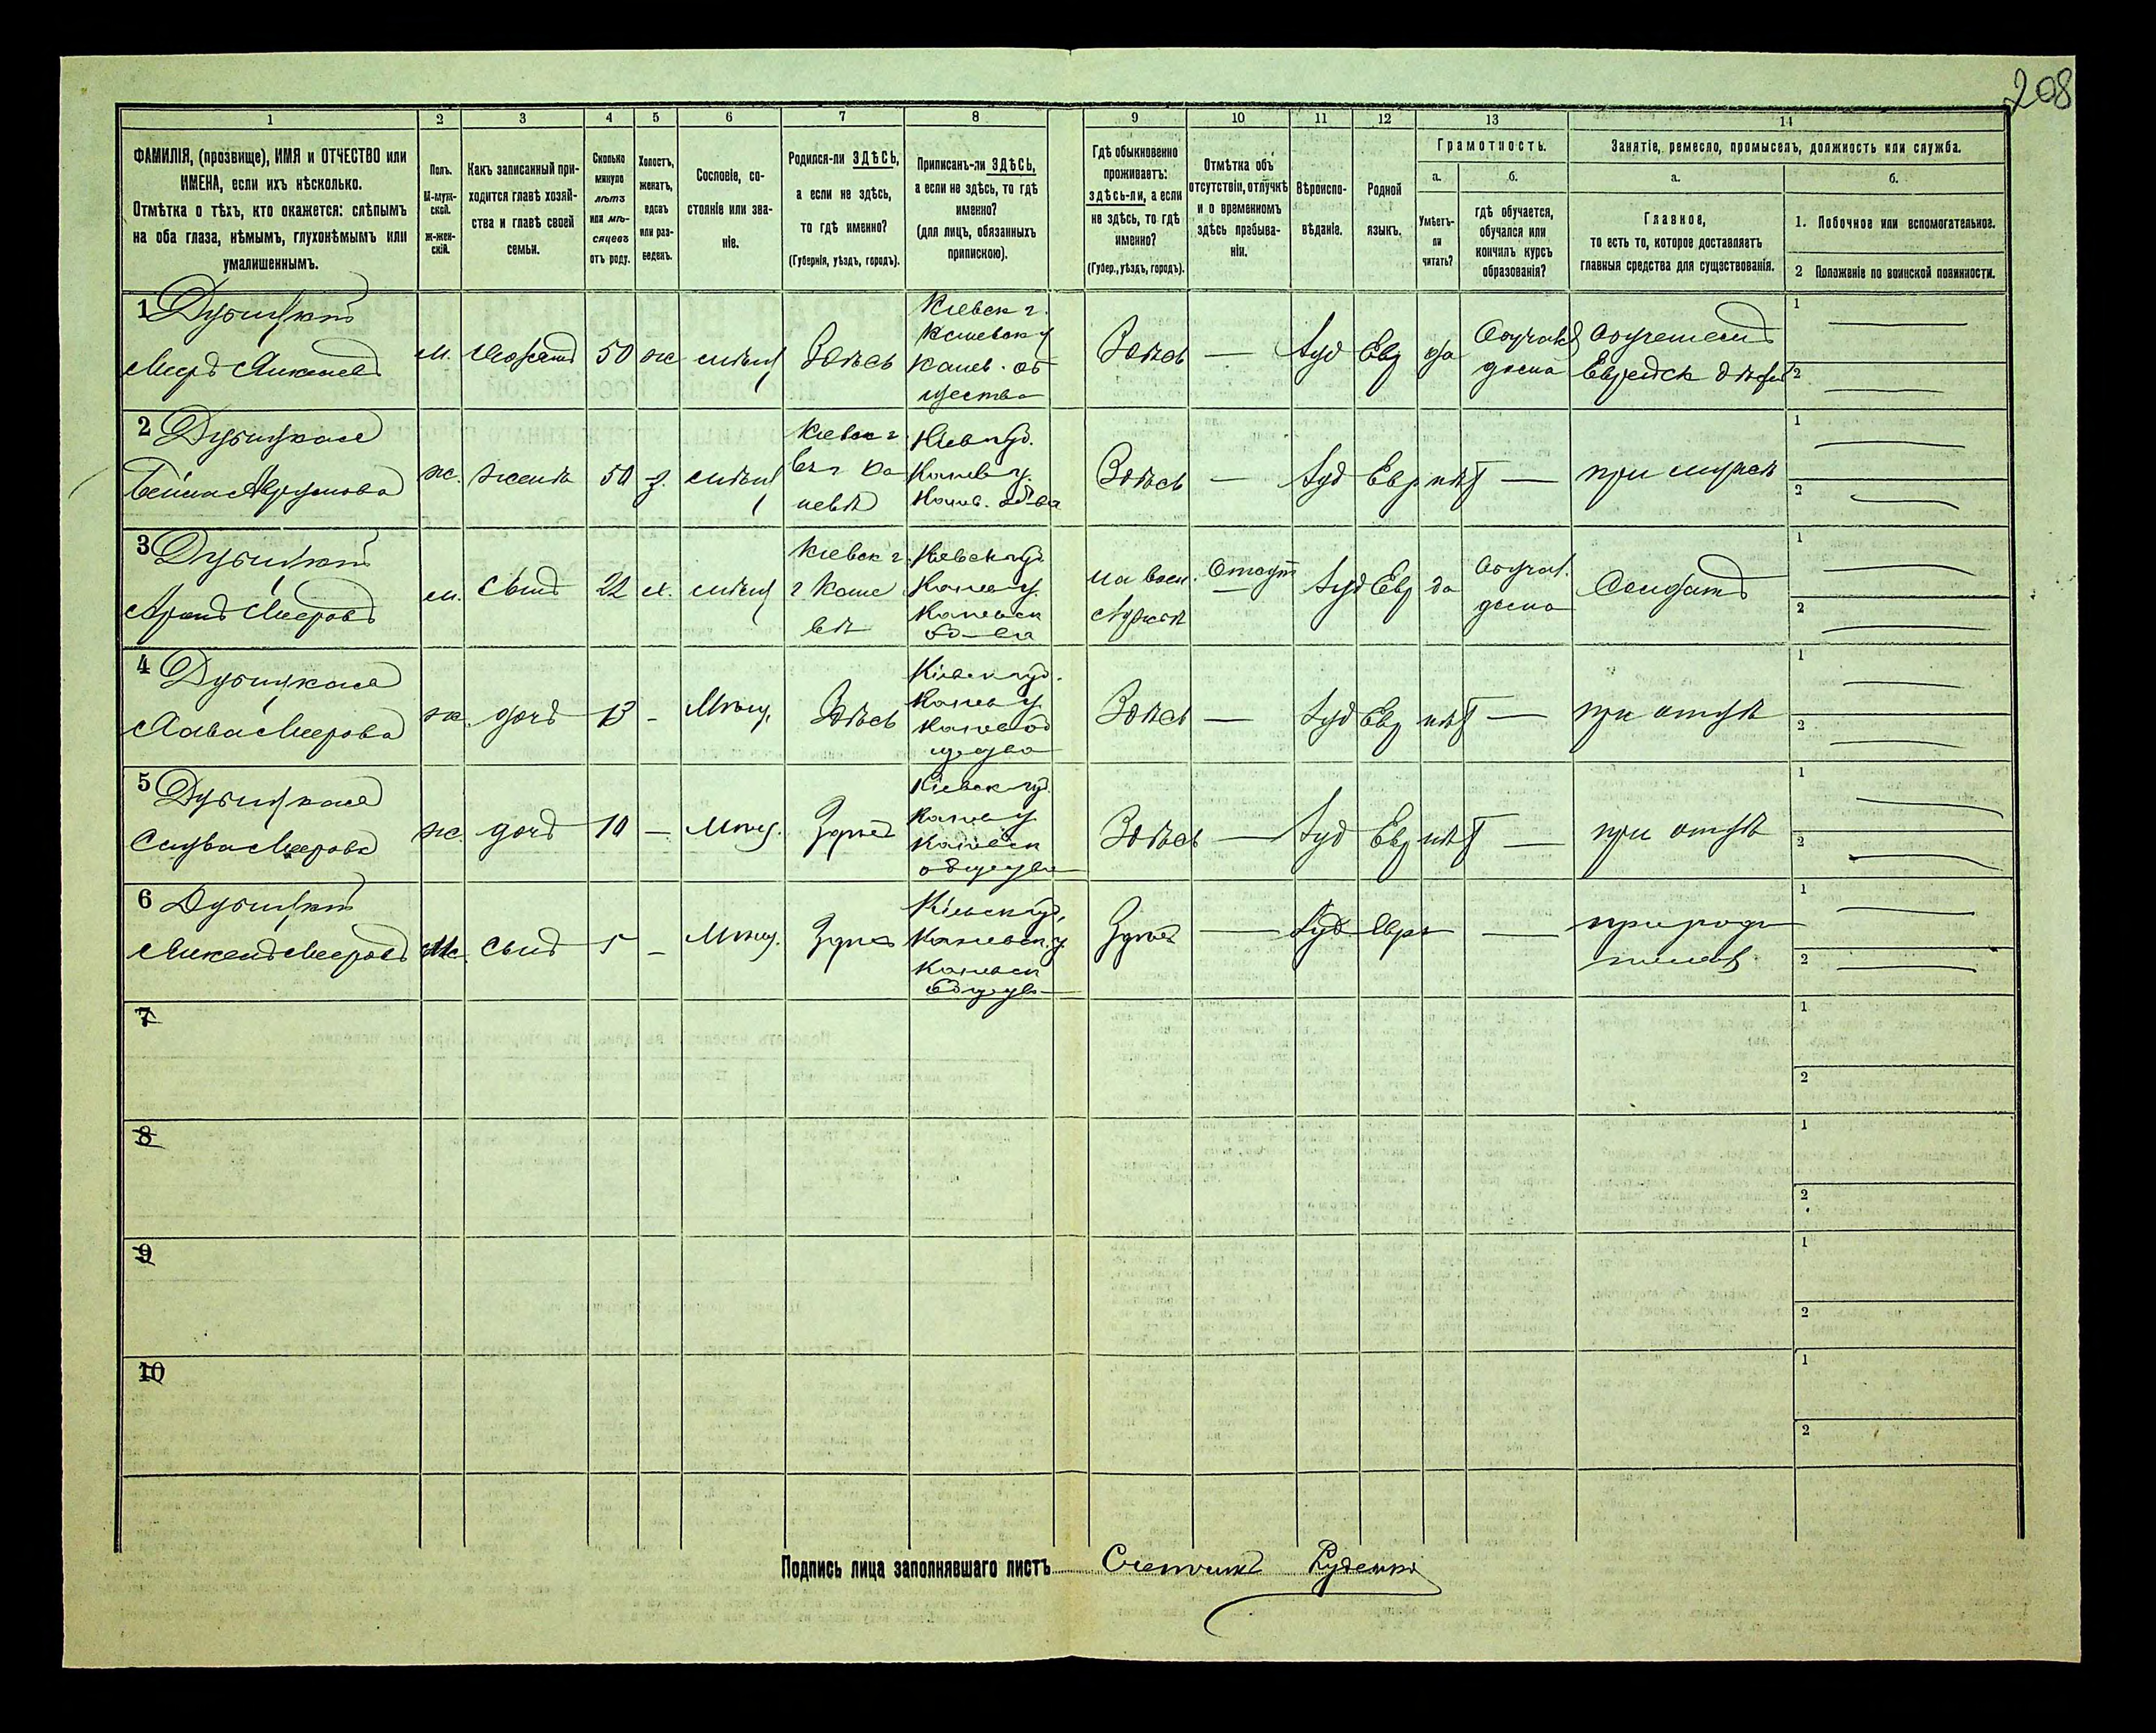 208
1
2
3
4
5
6
7
8
9
10
11
12
13
14
ФАМИЛІЯ, (прозвище), ИМЯ и ОТЧЕСТВО или
ИМЕНА, если ихъ нѣсколько.
Отмѣтка о тѣхъ, кто окажется: слѣпымъ
на оба глаза, нѣмымъ, глухонѣмымъ или
умалишеннымъ.
Полъ.
М-муж-
ской.
ж-жен-
скій.
Какъ записанный при-
ходится главѣ хозяй-
ства и главѣ своей
семьи.
Сколько
минуло
лѣтъ
или мѣ-
сяцевъ
отъ роду.
Холостъ,
женатъ,
вдовъ
или раз-
веденъ.
Сословіе, со-
стояніе или зва-
ніе.
Родился-ли ЗДѢСЬ,
а если не здѣсь,
то гдѣ именно?
(Губернія, уѣздъ, городъ).
Приписанъ-ли ЗДѢСЬ,
а если не здѣсь, то гдѣ
именно?
(для лицъ, обязанныхъ
припискою).
Гдѣ обыкновенно
проживаетъ:
здѣсь-ли, а если
не здѣсь, то гдѣ
именно?
(Губер., уѣздъ, городъ).
Отмѣтка объ
отсутствіи, отлучкѣ
и о временномъ
здѣсь пребыва-
ніи.
Вѣроиспо-
вѣданіе.
Родной
языкъ.
Грамотность.
а.
Умѣетъ-
ли
читать?
б.
гдѣ обучается,
обучался или
кончилъ курсъ
образованія?
Занятіе, ремесло, промыселъ, должность или служба.
а.
Главное,
то есть то, которое доставляетъ
главныя средства для существованія.
б.
1. Побочное или вспомогательное.
2 Положеніе по воинской повинности.
1
Меръ Янкелев
м.
50
ж
Здѣсь
Кіевск г.
Каневск у
Канев. об
щества
Здѣсь
Іуд
Евр
да
дома
Еврейск дѣтей
1
2
2
Бейла
ж.
жена
50
з.
Кіевск г.
въ г Ка
невѣ
Кіев губ.
Канев у.
Канев. об-ва
Здѣсь
Іуд
Евр
нѣт
при мужѣ
1
2
3
Аронъ Мееровъ
м.
сынъ
22
х.
Кіевск г.
г Кане
вѣ
Кіевск губ
Канев у.
Каневск
об-ва
на воен.
службѣ
Отсут
Іуд
Евр
да
Обучал.
дома
Солдатъ
1
2
4
Меерова
ж.
дочь
13
Мѣщ.
Здѣсь
Кіевск губ.
Канев у
Канев об
щества
Здѣсь
Іуд
Евр
нѣт
при отцѣ
1
2
5
Меерова
ж.
дочь
10
Мѣщ.
Здѣсь
Кіевск губ.
Канев у
Каневск
общества
Здѣсь
Іуд
Евр
нѣт
при отцѣ
1
2
6
Янкель Мееровъ
М
сынъ
5
Мѣщ.
Здѣсь
Кіевск губ.
Каневск. у
Каневск
общества
Здѣсь
Іуд
Евр
при роди
телях
1
2
7
1
2
8
1
2
9
1
2
10
1
2
Подпись лица заполнявшаго листъ Счетчикъ Руденко